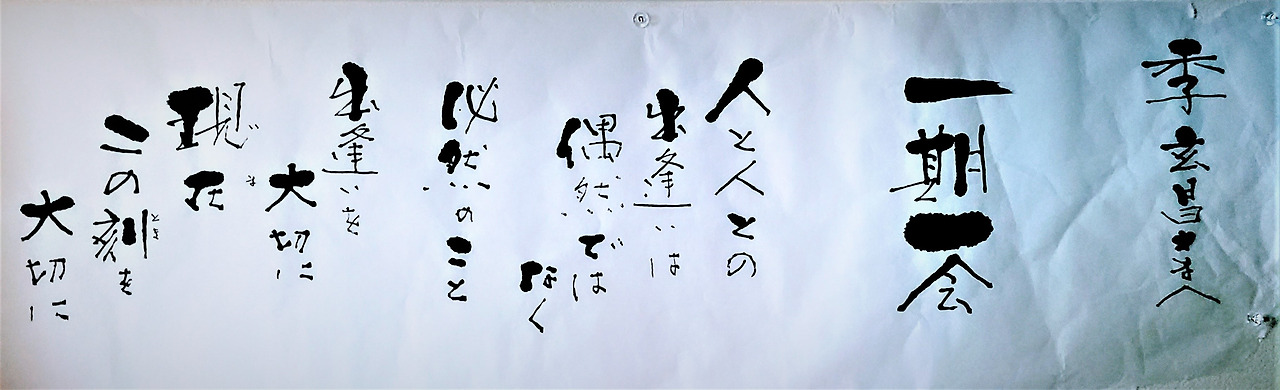 季玄昌さまへ
一期一会
人と人との
出逢いは
偶然では
なく
必然のこと
出逢いを
大切に
現在
いま
この刻を
とき
大切に